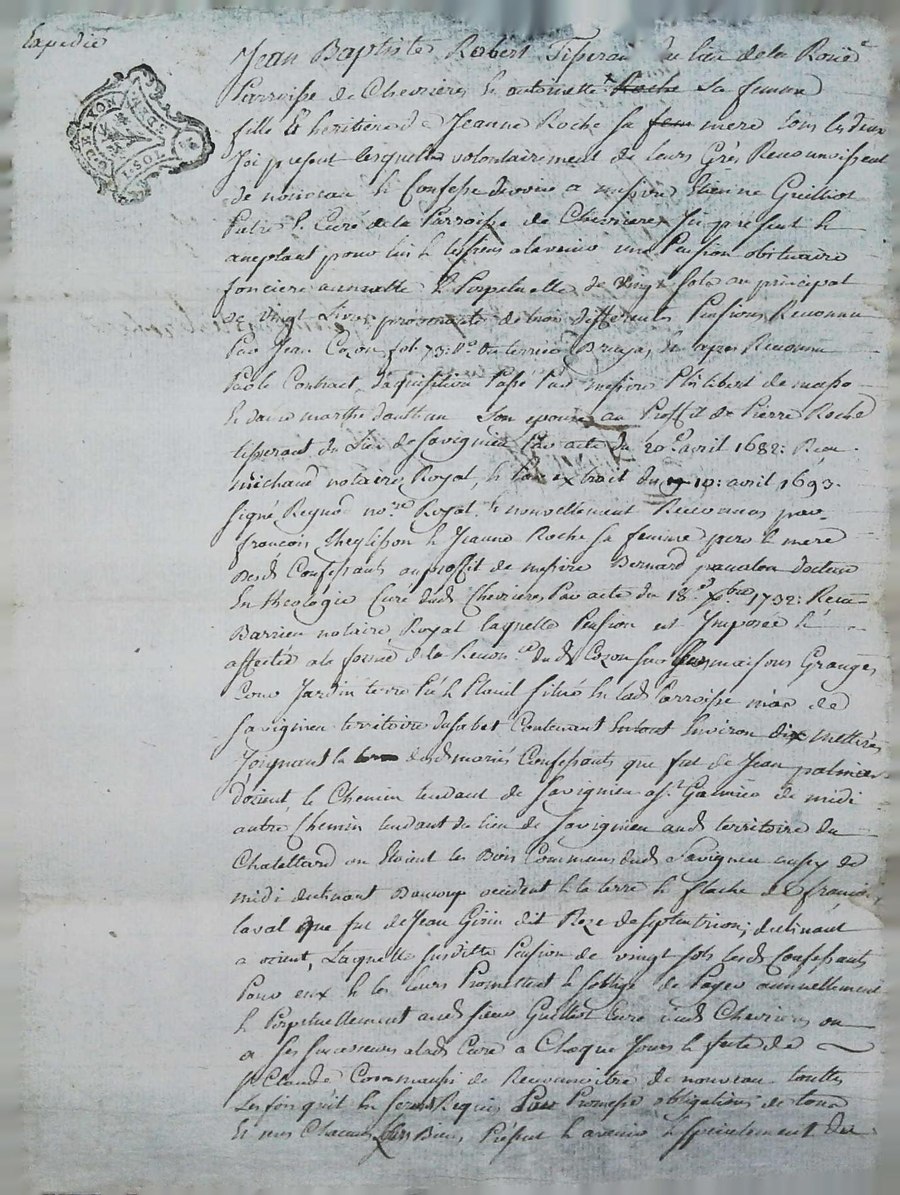 Expedié
G. DE LYON
1. SOL
Jean Baptiste Robert Tisseran du lieu de la Rouë
Parroisse de Chevrieres & antoinette Roche sa femme
fille & heritiere de Jeanne Roche sa fem mere tous les deux
Ici present lesquelles volontairement de leurs Grés Reconnoissent
de nouveau & Confesse devoir a messire Etienne Guilliot
Pretre & Curé de la Parroisse de Chevrieres Ici present &
aceptant pour lui & les siens alavenir une Pension obituaire
fonciere annuelle & Perpetuelle de vingt sols au principal
de vingt Livres provenante de trois differentes Pensions Reconnu
Par Jean Cozon fol. 73: Vo du terrier Bruyas, & apres Reconnu
Par le Contract d'aquisition Passé Par messire Philibert de masso
& dame marthe son epouse au Proffit de Pierre Roche
tisserant du Lieu de Savignieu Par acte du 20e avril 1682: Reçu
michaud notaire Royal, & Par extrait du 19: avril 1693.
signé Reynod nore Royal & nouvellement Reconnus par
françois & Jeanne Roche sa femme pere & mere
Desds Confessants au proffit de messire Bernard docteur
En theologie Curé dud Chevrieres Par acte du 18e Xbre 1732: Reçu
Barrieu notaire Royal laquelle Pension est Imposée &
affectée a la forme de la Reconce dud Cozon sur maisons Granges
Cour Jardin terre Pré & situés en lad Parroisse mas de
Savignieu territoire Contenant Entout Environ dix metterées
Joignant la desds mariés Confessants que fut de Jean
d'orient, le Chemin tendant de Savignieu a St Galmier de midi
autre Chemin tendant du lieu de Savignieu aud territoire du
Chatellard ou Etoient les Bois Communs dud Savignieu aussy de
midi declinant Baucoup occident & la terre & de françois
laval que fut de Jean Girin dit Roze de septentrion, declinant
a orient, Laquelle susditte Pension de vingt sols lesds Confessants
Pour eux & les leurs Promettent & soblige de Payer annuellement
& Perpetuellement aud sieur Guilliot Curé dud Chevrieres ou
a ses successeurs alad Cure a Chaque Jour & feste de
St Claude Comme aussi de Reconnoitre de nouveau touttes
Les fois quil En seront Requis Par Promesse obligations de tous
Et uns Chacuns leurs Biens Présent & avenir & specialement du